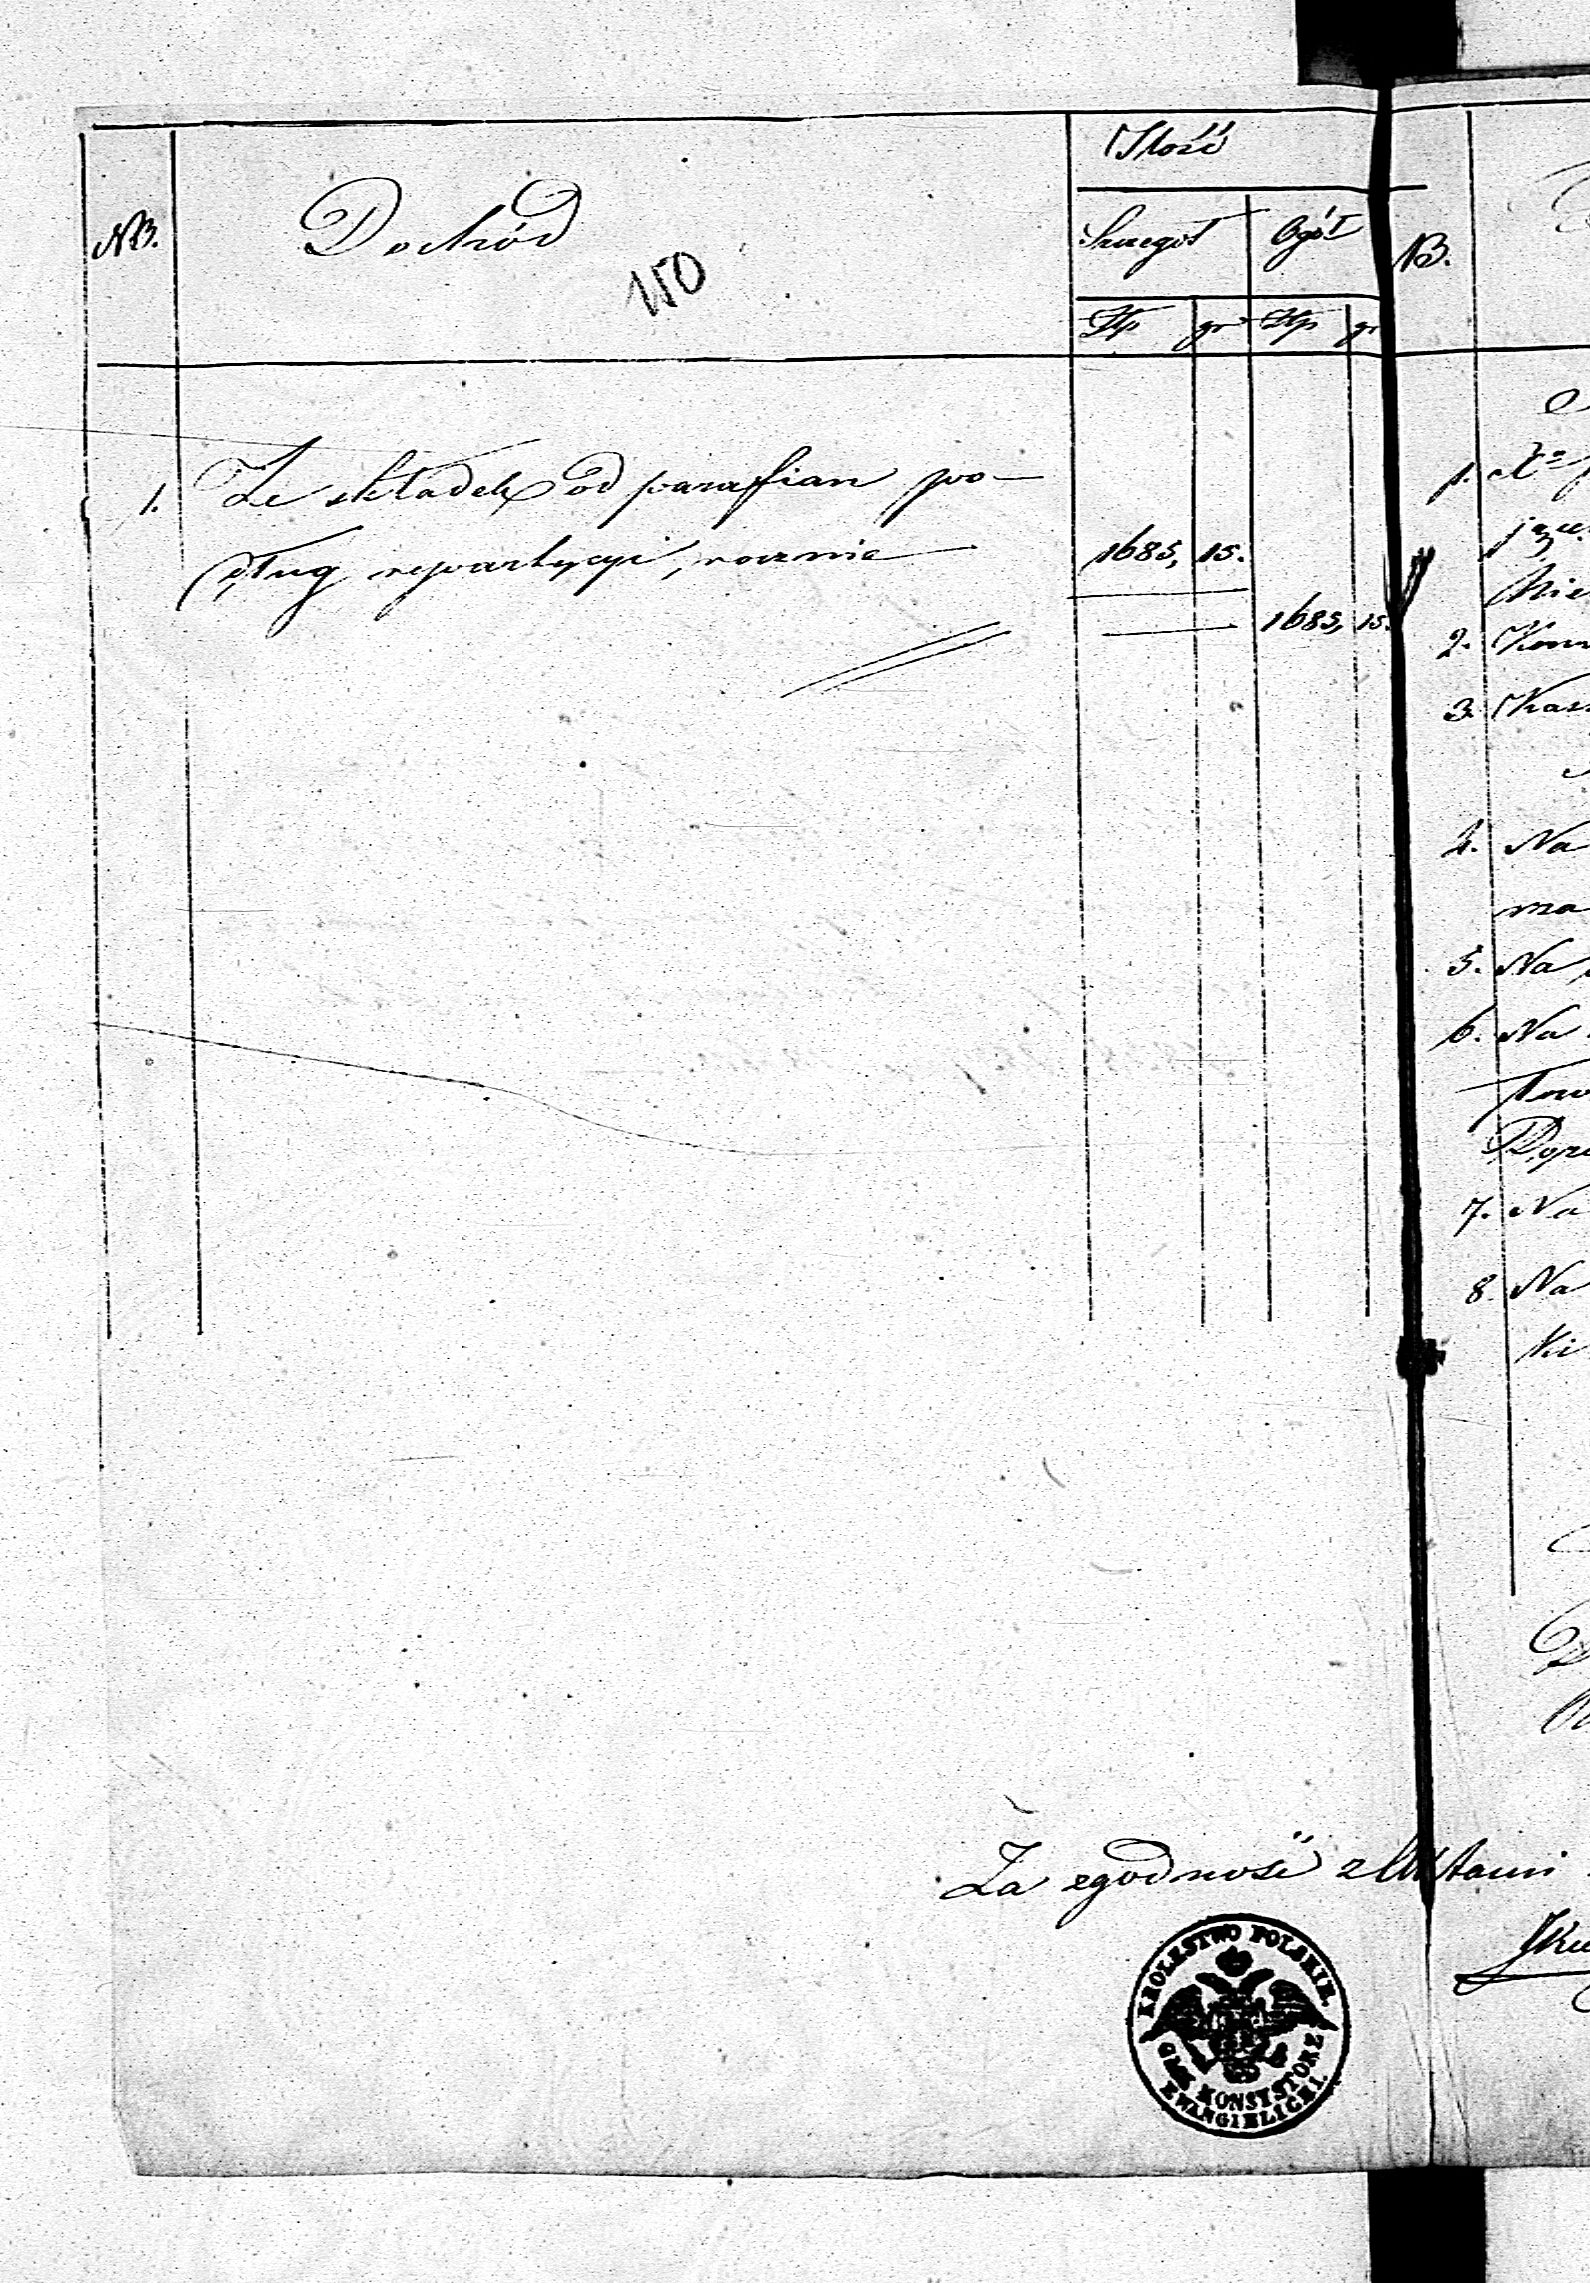 NB.
Dochód
Ilość
Szczegół
Ogół
Złp
gr
Złp
gr
150
1. Ze składek od parafian po-
dług repartycyi, rocznie
1685, 15.
1685, 15.
NB.
1.
2.
3.
4. Na
5. Na
6. Na
7. Na
8. Na
Za zgodność
KROLESTWO POLSKIE.
KONSYSTORZ
EWANGIELICKI.